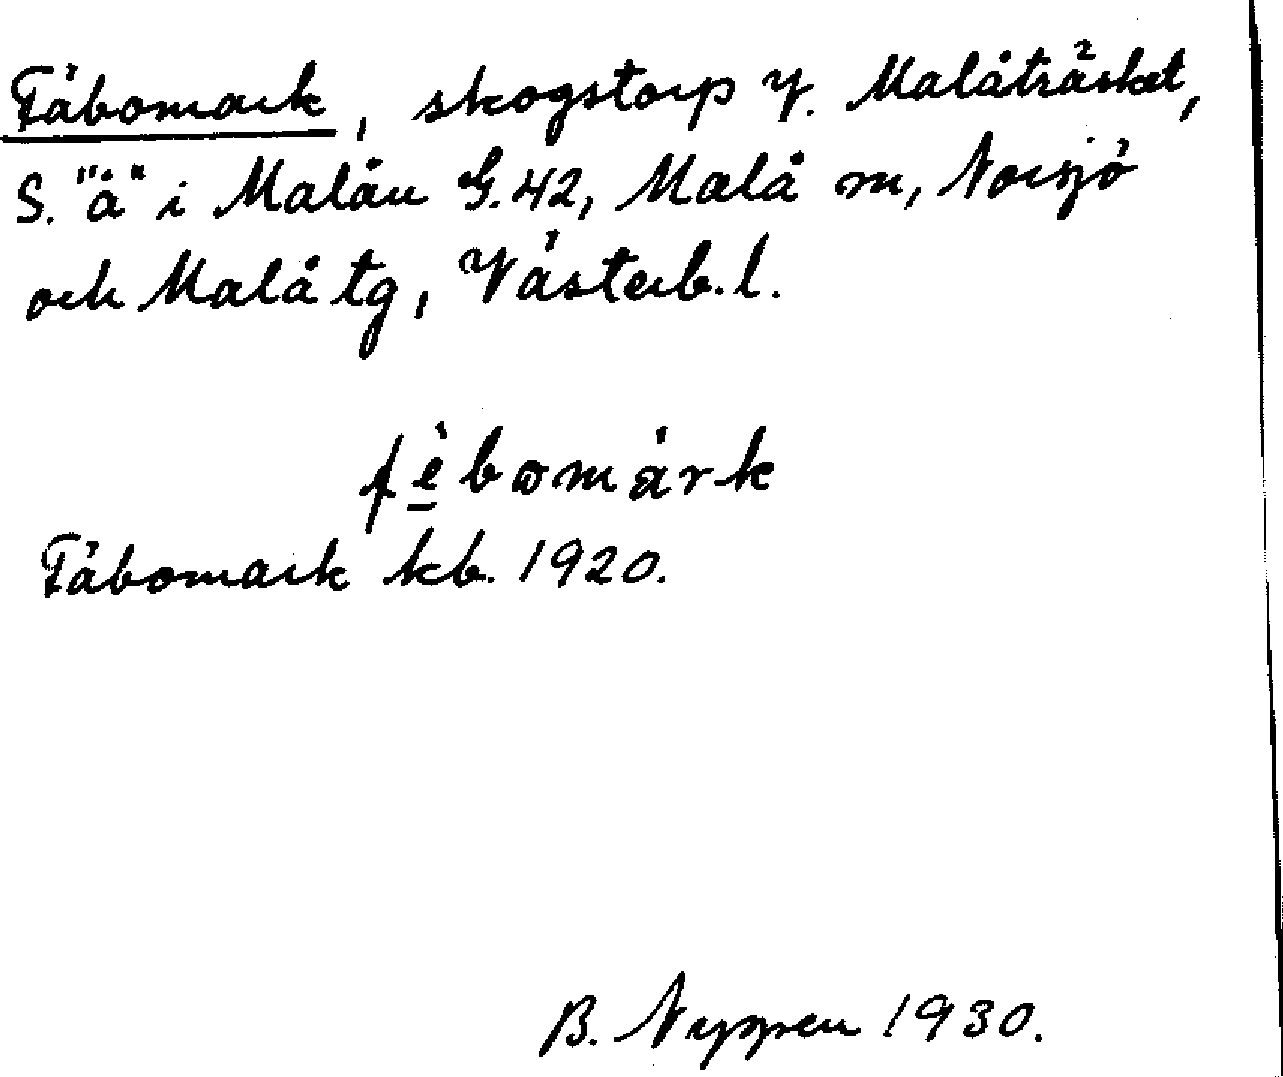 Fäbomark, skogstorp V. Malåträsket,
S. "å" i Malåu G.42, Malå sn, Norsjö
och Malå tg, Västerb. l.
fèbomárk
Fäbomark kb. 1920.
B. Nygren 1930.